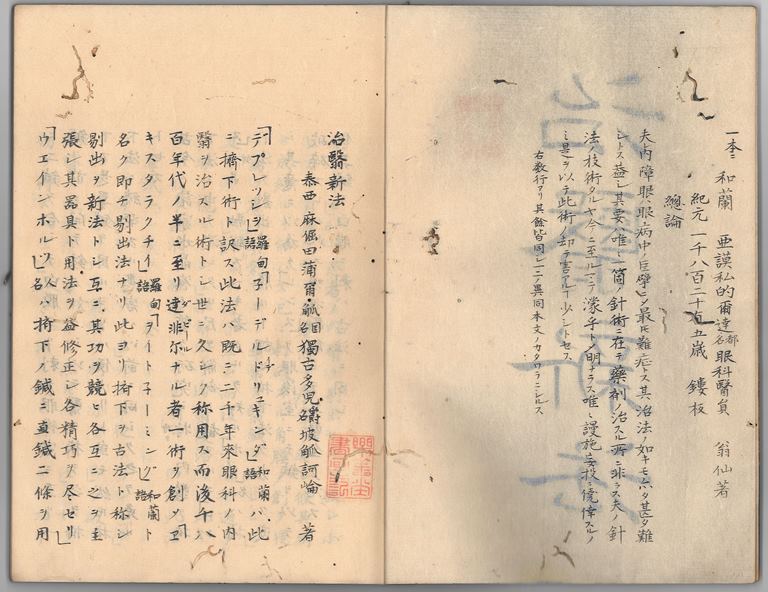 一本ニ 和蘭 亜謨私的爾達都名眼科醫員 翁仙著
紀元一千八百二十有五歳 鏤板
總論
夫内障眼ハ眼病中ノ巨擘ニシテ最モ難症トス其治法ノ如キモ亦タ甚タ難
シトス蓋シ其要ハ唯々一箇ノ針術ニ在テ藥劑ノ治スル所ニ非ラス夫針
法ノ技術タルヤ今ニ至ルマテ濛乎トシテ明ナラス唯々謾施妄投シ僥倖スルノ
ミ是ヲ以テ此術ノ却テ害アルヿ少シトセス
右数行アリ其餘皆同シ一二ノ異同本文ノカタワラニシルス
治翳新法
泰西 麻倔田蒲爾觚国名 獨古多児爵名坡觚訶崘 著
「デプレッシヲ」羅甸語「子ーデルドリュキンダ」和蘭語ハ此
ニ擠下術ト訳ス此法ハ既ニ二千年來眼科ノ内
翳ヲ治スル術トシ世ニ久シク称用ス而後千八
百年代ノ半ニ至リ達非尓ダビールナル者一術ヲ創ソ「エ
キスタラクチイ」羅甸語「ヲイト子ーミング」和蘭語ト
名ク即チ剔出法ナリ此ヨリ擠下ヲ古法ト称シ
剔出ヲ新法トシ互ニ其功ヲ競ヒ各互ニ之ヲ主
張シ其器具ト用法ヲ益修正シ各精巧ヲ尽セリ
「ウエインホルス」人名ハ擠下ノ鍼ニ直鍼二條ヲ用